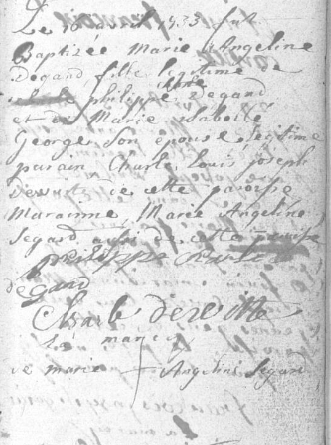 Le 18 1733 fut
Baptizée Marie Angeline
Degand fille legitime de
philippe Degand
et de Marie isabelle
George son epouse legitime
parain Charle Louis joseph
Dewitte de cette paroisse
Marainne Marie Angeline
Segard aussi de cette paroisse
philippe
degand
Charle dewitte
marque
de marie Angeline Segard